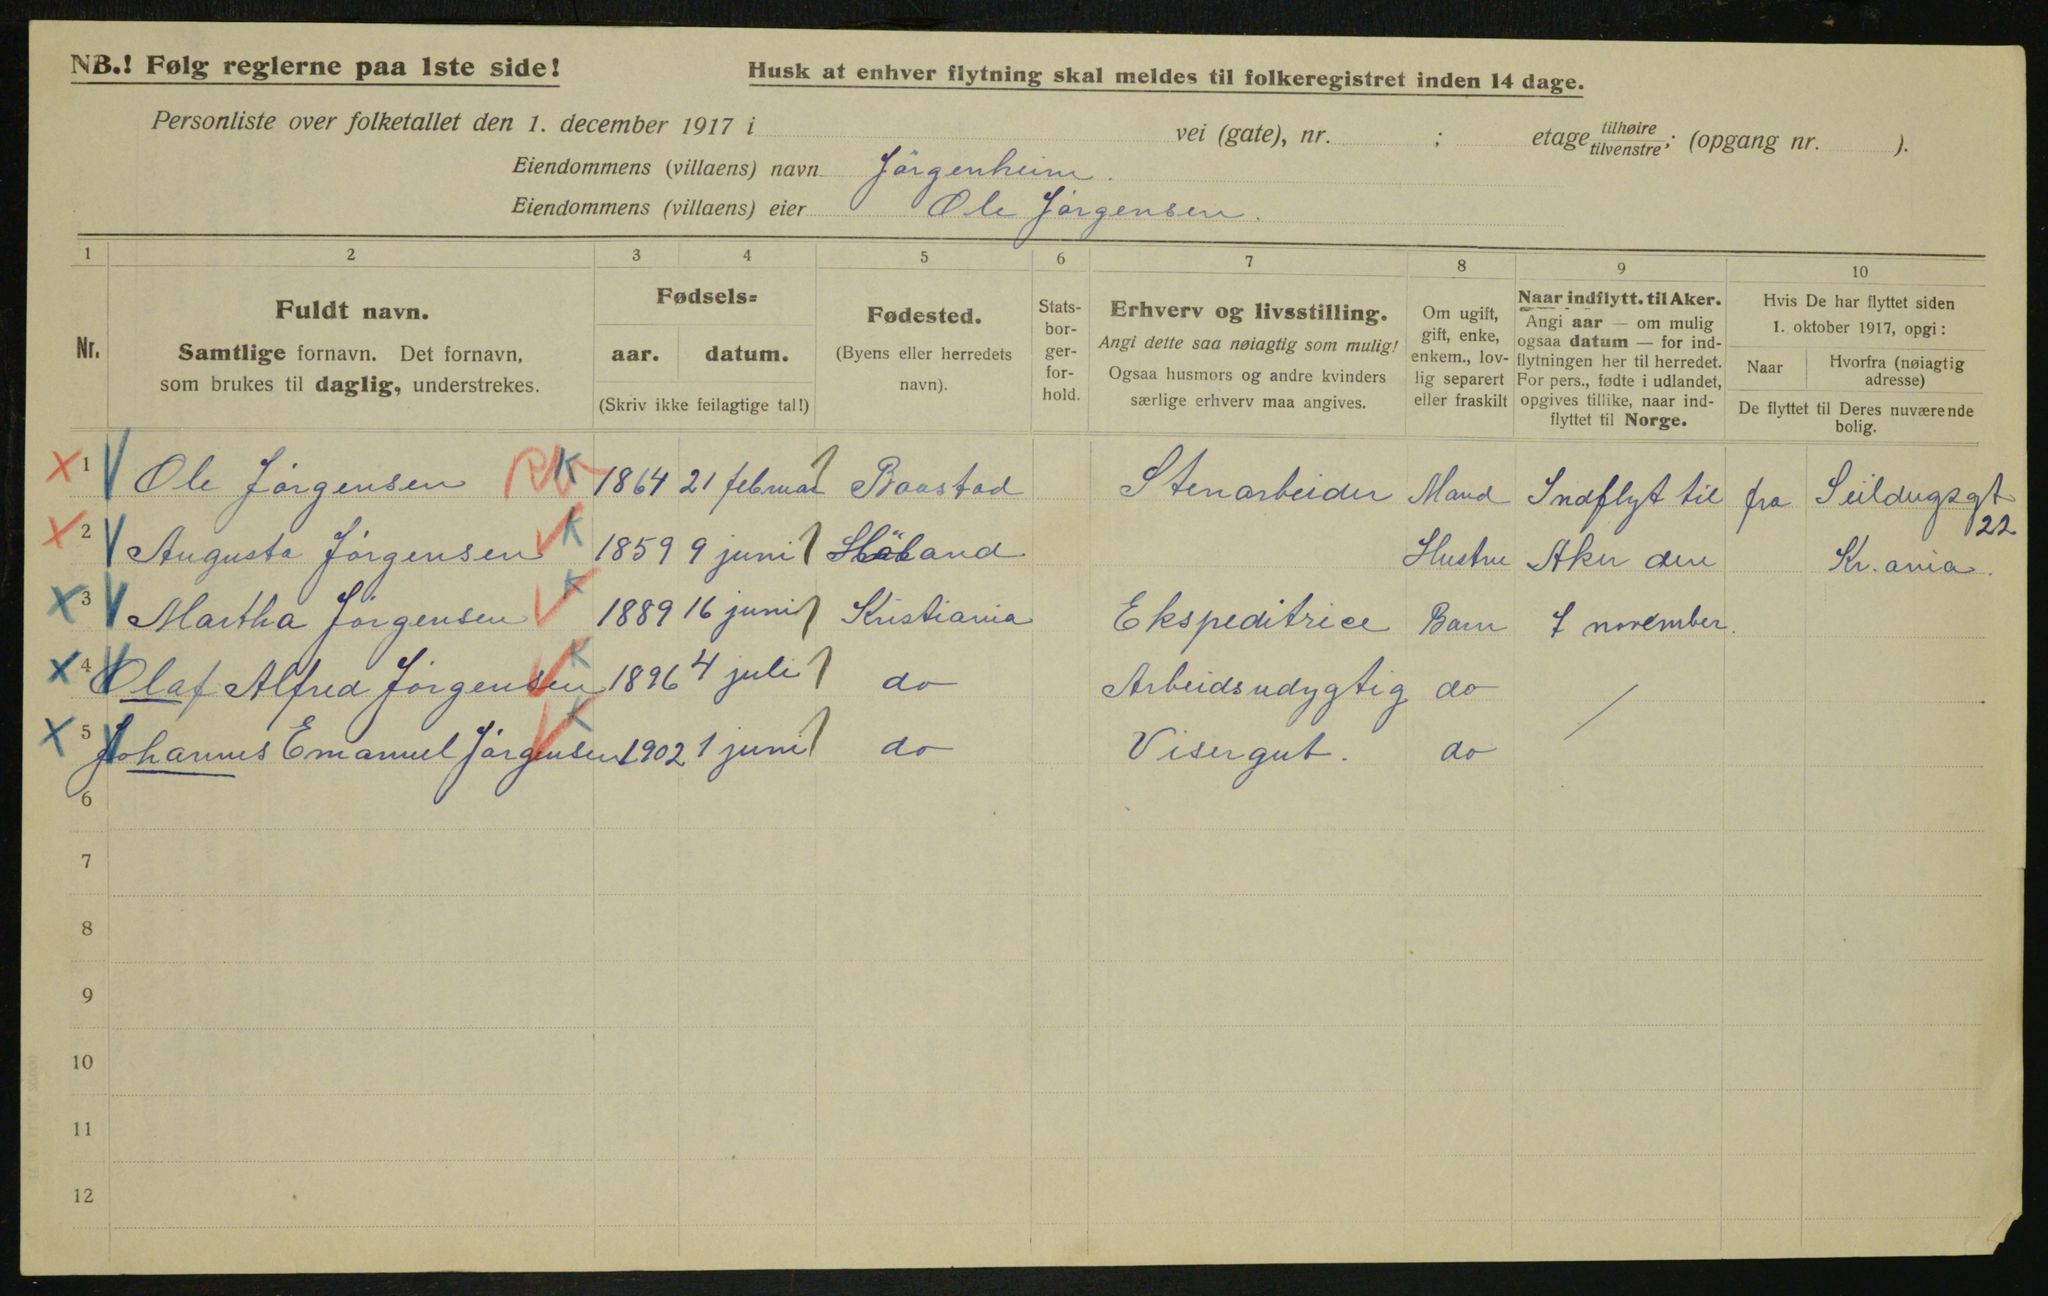 NB.! Følg reglerne paa 1ste side!
Husk at enhver flytning skal meldes til folkeregistret inden 14 dage.
Personliste over folketallet den 1. december 1917 i vei (gate), nr. ; etage tilhøire/tilvenstre; (opgang nr. ).
Eiendommens (villaens) navn Jörgenheim.
Eiendommens (villaens) eier Ole Jörgensen.
1 2 3 4 5 6 7 8 9 10
Nr.
Fuldt navn.
Samtlige fornavn. Det fornavn,
som brukes til daglig, understrekes.
Fødsels=
aar. datum.
(Skriv ikke feilagtige tal!)
Fødested.
(Byens eller herredets
navn).
Stats-
bor-
ger-
for-
hold.
Erhverv og livsstilling.
Angi dette saa nøiagtig som mulig!
Ogsaa husmors og andre kvinders
særlige erhverv maa angives.
Om ugift,
gift, enke,
enkem., lov-
lig separert
eller fraskilt
Naar indflytt. til Aker.
Angi aar — om mulig
ogsaa datum — for ind-
flytningen her til herredet.
For pers., fødte i udlandet,
opgives tillike, naar ind-
flyttet til Norge.
Hvis De har flyttet siden
1. oktober 1917, opgi:
Naar
Hvorfra (nøiagtig
adresse)
De flyttet til Deres nuværende
bolig.
1 Ole Jörgensen K 1864 21 februar Baastad Stenarbeider Mand Indflyt til fra Seildugsgt
22
2 Augusta Jörgensen K 1859 9 juni Hustru Aker den Kr.ania.
3 Martha Jörgensen K 1889 16 juni Kristiania Ekspeditrice Barn 7 november.
4 Olaf Alfred Jörgensen K 1896 4 juli do Arbeidsudygtig do /
5 Johannes Emanuel Jörgensen K 1902 1 juni do Visergut. do
6
7
8
9
10
11
12